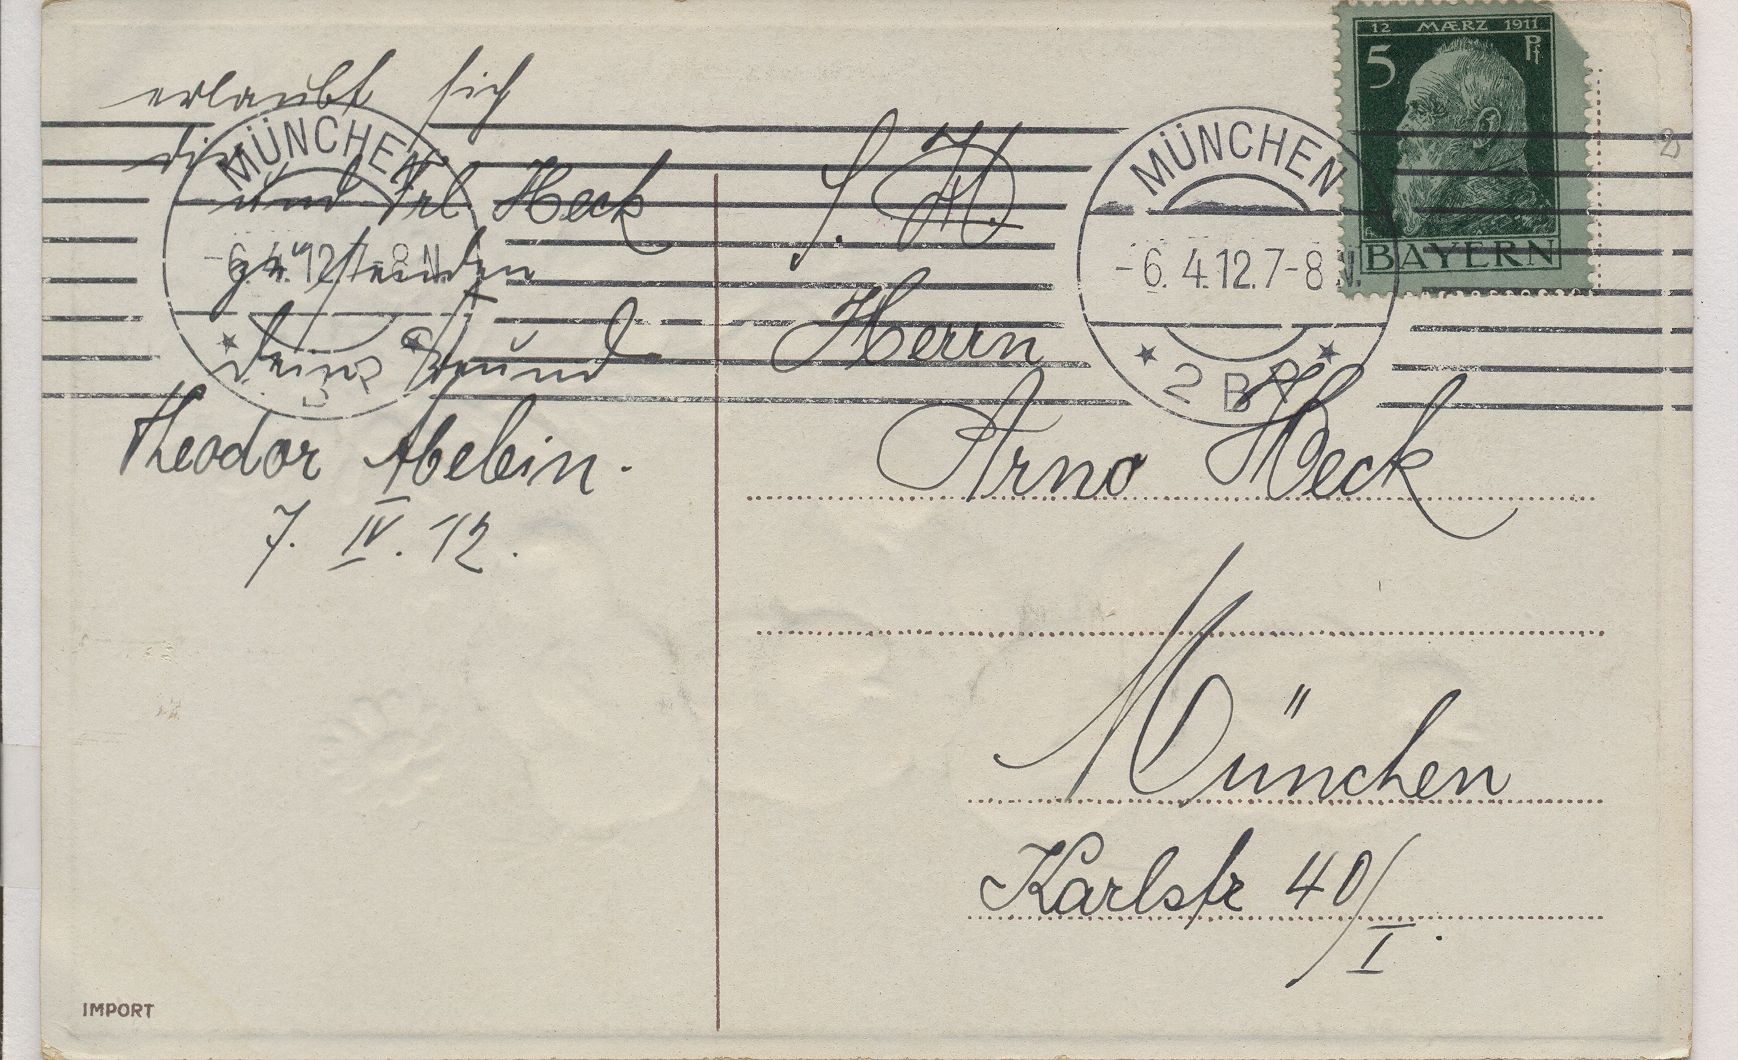 erlaubt sich
dir
und Frl Heck
zu senden
dein Freund
Theodor Abelein.
7. IV. 12.
MÜNCHEN
-6.4.12.7-8N.
S. H.
Herrn
Arno Heck
München
Karlstr 40/I.
MÜNCHEN
-6.4.12.7-8N.
* 2 B *
12 MÆRZ 1911
5 Pf
BAYERN
2)
IMPORT